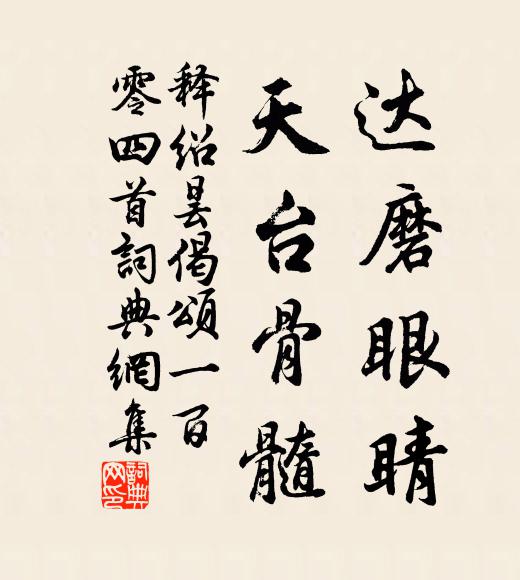 达磨眼睛
天台骨髓
释绍昙偈颂一百
零四首詞典網集
詞典
网印